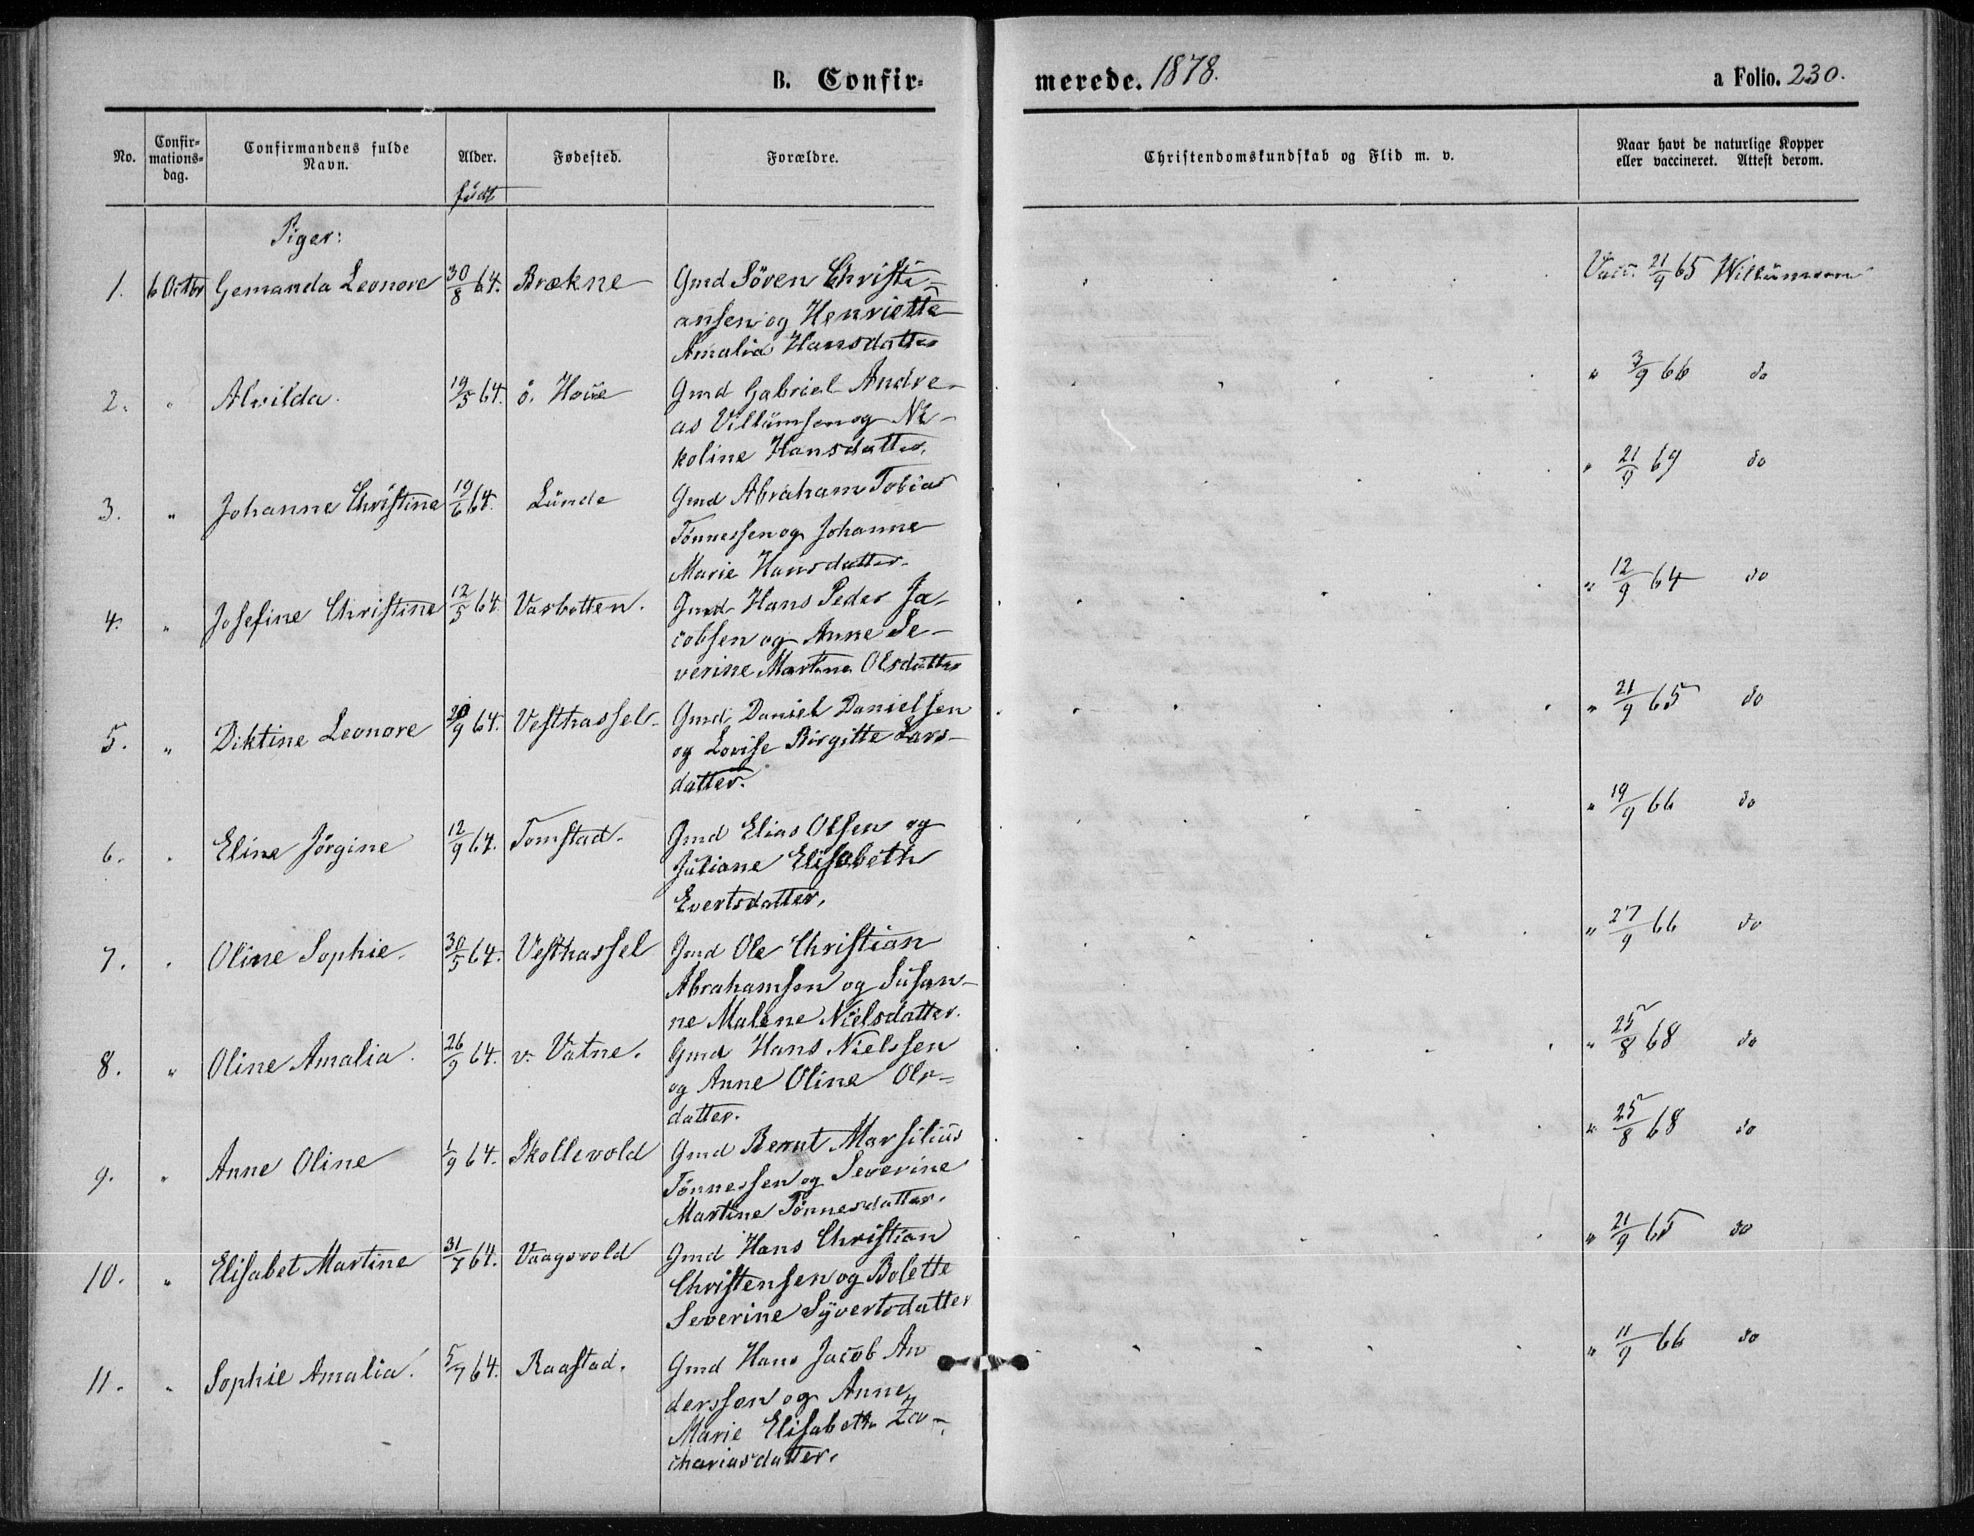 B. Confir-
merede. 1878.
a Folio. 230.
No.
Confir-
mations-
dag.
Confirmandens fulde
Navn.
Alder.
Fødested.
Forældre.
Christendomskundskab og Flid m. v.
Naar havt de naturlige Kopper
eller vaccineret. Attest derom.
født
Piger:
1. 6 Octbr Gemanda Leonore 30/8 64. Brækne Gmd Sören Christi-
ansen og Henriette
Amalia Hansdatter
Vacc. 21/9 65 Willumsen
2. " Alvilda. 19/5 64. ö. Haüe Gmd Gabriel Andre-
as Villümsen og Ni-
koline Hansdatter.
" 3/9 66 do
3. " Johanne Christine 19/6 64. Lünde Gmd Abraham Tobias
Tönnessen og Johanne
Marie Hansdatter.
" 21/9 69 do
4. " Josefine Christine 12/5 64. Vasbotten. Gmd Hans Peder Ja-
cobsen og Anne Se-
verine Martine Olsdatter
" 12/9 64 do
5. " Diktine Leonore 20/9 64. Vesthassel. Gmd Daniel Danielsen
og Lovise Birgitte Lars-
datter.
" 21/9 65 do
6. " Eline Jörgine 12/9 64. Tomstad. Gmd Elias Olsen og
Juliane Elisabeth
Evertsdatter.
" 19/9 66 do
7. " Oline Sophie. 30/5 64. Vesthassel Gmd Ole Christian
Abrahamsen og Susan-
ne Malene Nielsdatter.
" 27/9 66 do
8. " Oline Amalia. 26/9 64. v. Vatne. Gmd Hans Nielssen
og Anne Oline Ols-
datter.
" 25/8 68 do
9. " Anne Oline 1/9 64. Skollevold Gmd Bernt Marsilius
Tönnessen og Severine
Martine Tönnesdatter.
" 25/8 68 do
10. " Elisabet Martine 31/7 64. Vaagsvold Gmd Hans Christian
Christensen og Bolette
Severine Syvertsdatter
" 21/9 65 do
11. " Sophie Amalia. 5/7 64. Raastad. Gmd Hans Jacob An
derssen og Anne
Marie Elisabeth Za-
chariasdatter.
" 11/9 66 do